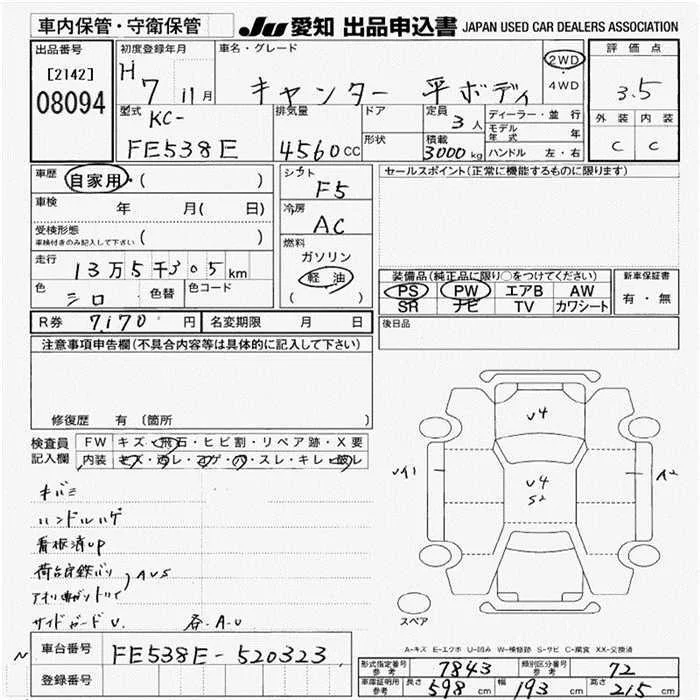 車内保管・守衛保管
JU 愛知 出品申込書 JAPAN USED CAR DEALERS ASSOCIATION
出品番号
[2142]
08094
初度登録年月
H 7 11月
車名・グレード
キャンター 平ボディ
2WD
・
4WD
評価点
3.5
外装 内装
C C
型式
KC-
FE538E
排気量
4560cc
ドア
形状
定員
3人
積載
3000kg
ディーラー・並行
モデル年式 年
ハンドル 左・右
車歴
自家用・( )
車検 年 月( 日)
受検形態
車検付きのみ記入して下さい ( )
走行 13万5千305km
色 シロ 色替 色コード
シフト
F5
冷房
AC
燃料
ガソリン
軽油
( )
セールスポイント(正常に機能するものに限ります)
装備品(純正品に限り○をつけてください)
PS PW エアB AW
SR ナビ TV カワシート
新車保証書
有・無
R券 7,170円 名変期限 月 日
後日品
注意事項申告欄(不具合内容等は具体的に記入して下さい)
修復歴 有 (箇所 )
検査員記入欄
FW キズ・飛石・ヒビ割・リペア跡・X要
内装 キズ・汚レ・コゲ・穴・スレ・キレ・破レ
キバミ
ハンドルハゲ
看板済UP
AUS
サイドガードU. 各・A・U
V4
V4
S2
A2
スペア
A-キズ E-エクボ U-凹み W-補修跡 S-サビ C-腐食 XX-交換済
車台番号 FE538E-520323
登録番号
形式指定番号 参考 7843
類別区分番号 参考 72
車庫証明用 参考 長さ 598cm 幅 193cm 高さ 215cm